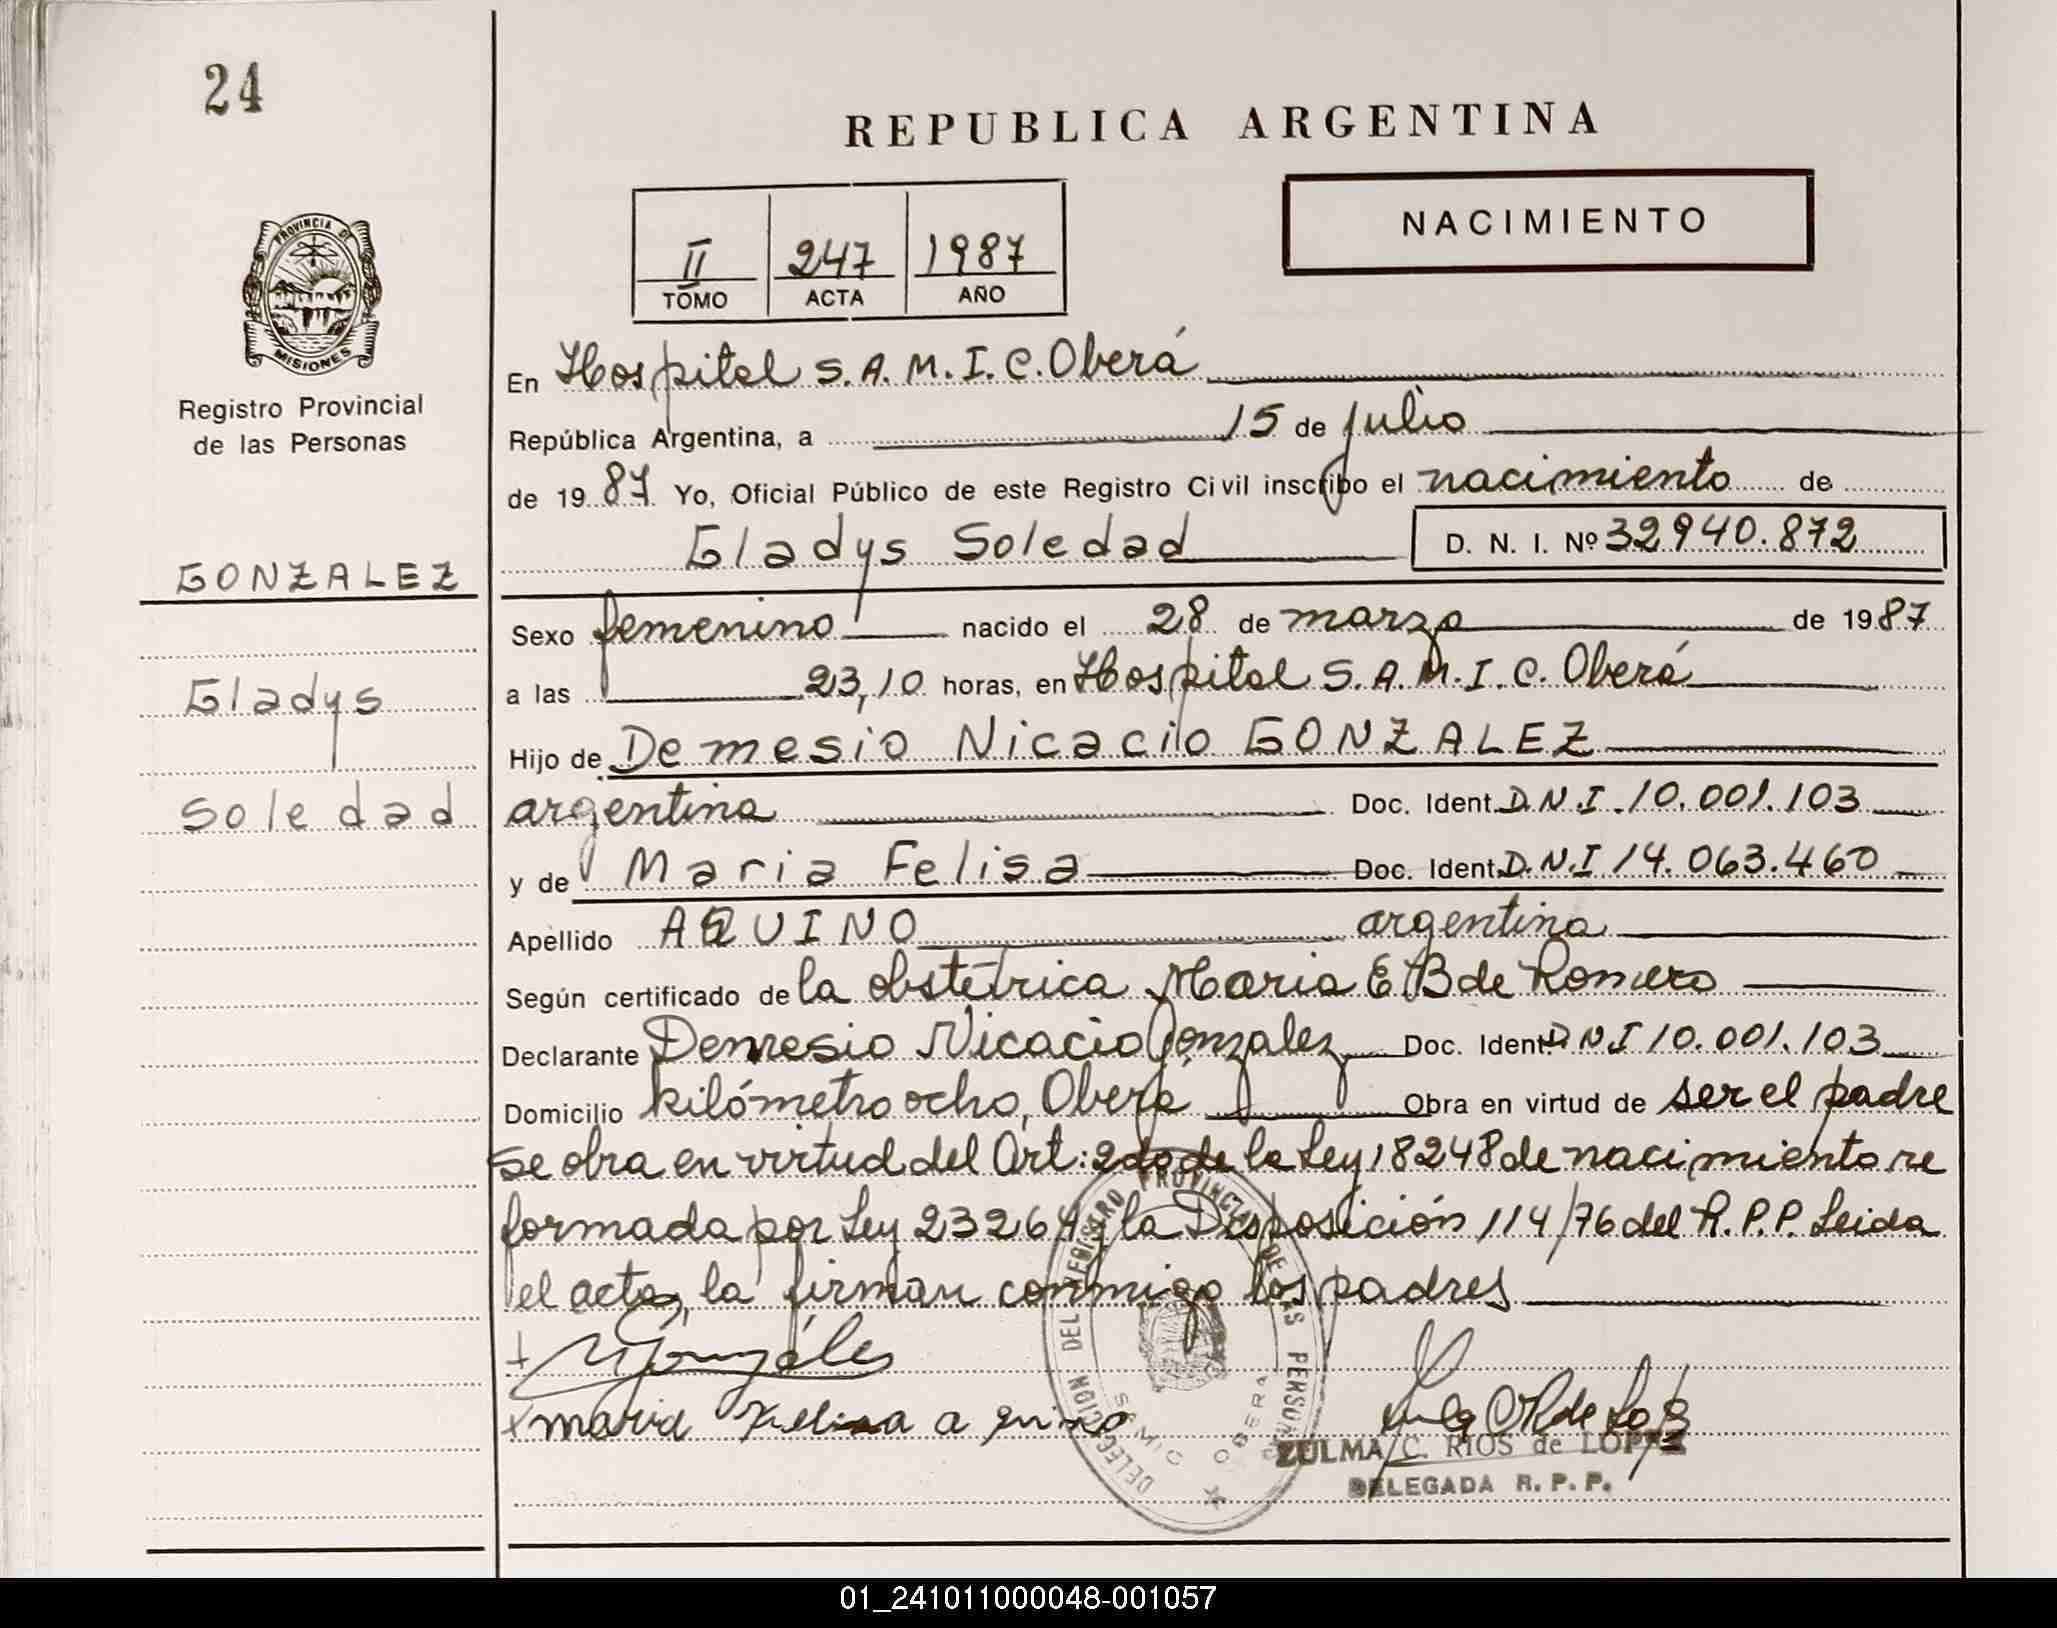 24
REPUBLICA ARGENTINA
NACIMIENTO
II 247 1987
TOMO ACTA AÑO
PROVINCIA DE
MISIONES
Registro Provincial
de las Personas
GONZALEZ
Gladys
Soledad
En Hospital S.A.M.I.C. Oberá
República Argentina, a 15 de julio
de 19 87 Yo, Oficial Público de este Registro Civil inscribo el nacimiento de
Gladys Soledad D. N. I. Nº 32940.872
Sexo femenino nacido el 28 de marzo de 1987
a las 23,10 horas, en Hospital S.A.M.I.C. Oberá
Hijo de Demesio Nicacio GONZALEZ
argentina Doc. Ident. D.N.I. 10.001.103
y de Maria Felisa Doc. Ident. D.N.I 14.063.460
Apellido AQUINO argentina
Según certificado de la obstétrica Maria E B de Romero
Declarante Demesio Nicacio Gonzalez Doc. Ident. D N I 10.001.103
Domicilio kilómetro ocho, Oberá Obra en virtud de ser el padre
se obra en virtud del Art: 2do de la Ley 18248 de nacimiento re
formada por Ley 23264 y la Disposición 114/76 del R.P.P. Leida
el acta, la firman conmigo los padres
Gonzáles
maria Felisa aquino
DELEGACION DEL REGISTRO PROVINCIAL DE LAS PERSONAS
SAMIC OBERA
ZULMA C. RIOS de LOPEZ
DELEGADA R. P. P.
01_241011000048-001057